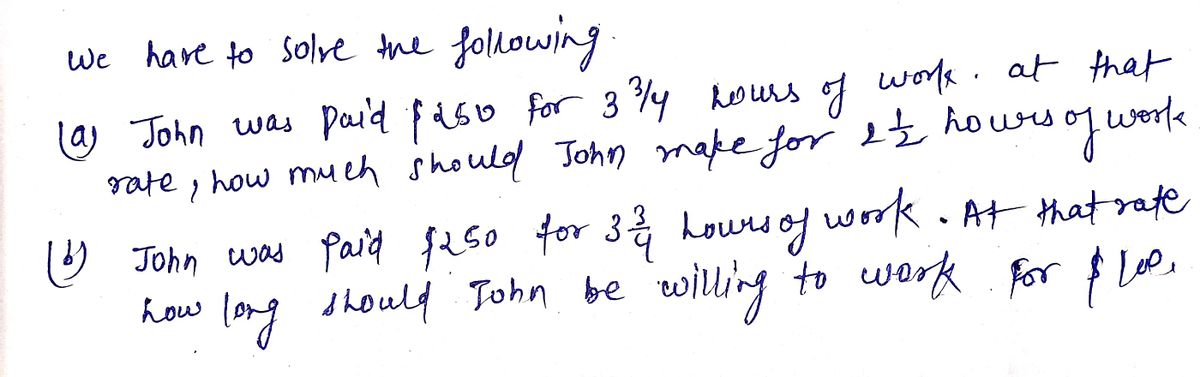 We have to solve the following.
(a) John was paid $250 for 3 3/4 hours of work. at that
rate, how much should John make for 2 1/2 hours of work
(b) John was paid $250 for 3 3/4 hours of work. At that rate
how long should John be willing to work for $